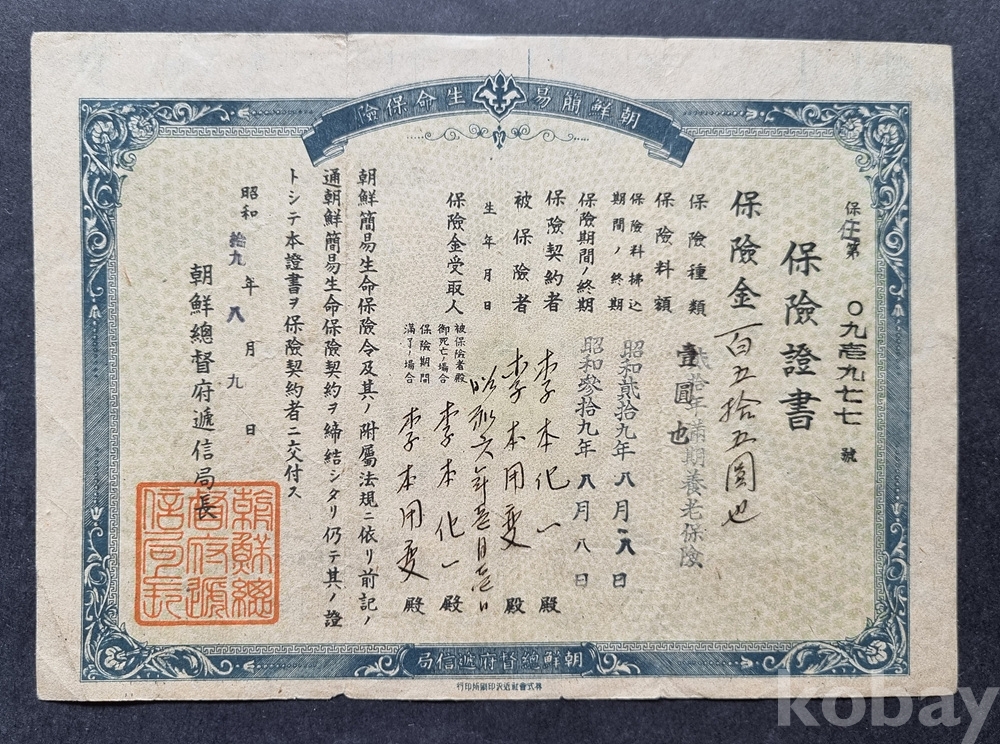 朝鮮簡易生命保險
保
第 〇九壱九七七 號
保險證書
保險金百五拾五圓也
保險種類 貳拾年滿期養老保險
保險料額 壹圓也
保險料拂込期間ノ終期 昭和貳拾九年八月八日
保險期間ノ終期 昭和參拾九年八月八日
保險契約者 李本化一殿
被保險者 李本用 殿
生年月日 昭和六年
保險金受取人
被保險者殿御死亡ノ場合 李本化一殿
保險期間滿了ノ場合 李本用 殿
朝鮮簡易生命保險令及其ノ附屬法規ニ依リ前記ノ
通朝鮮簡易生命保險契約ヲ締結シタリ仍テ其ノ證
トシテ本證書ヲ保險契約者ニ交付ス
昭和拾九年八月九日
朝鮮總督府遞信局長
朝鮮總督府遞信局長
朝鮮總督府遞信局
株式會社近沢印刷所印行
kobay